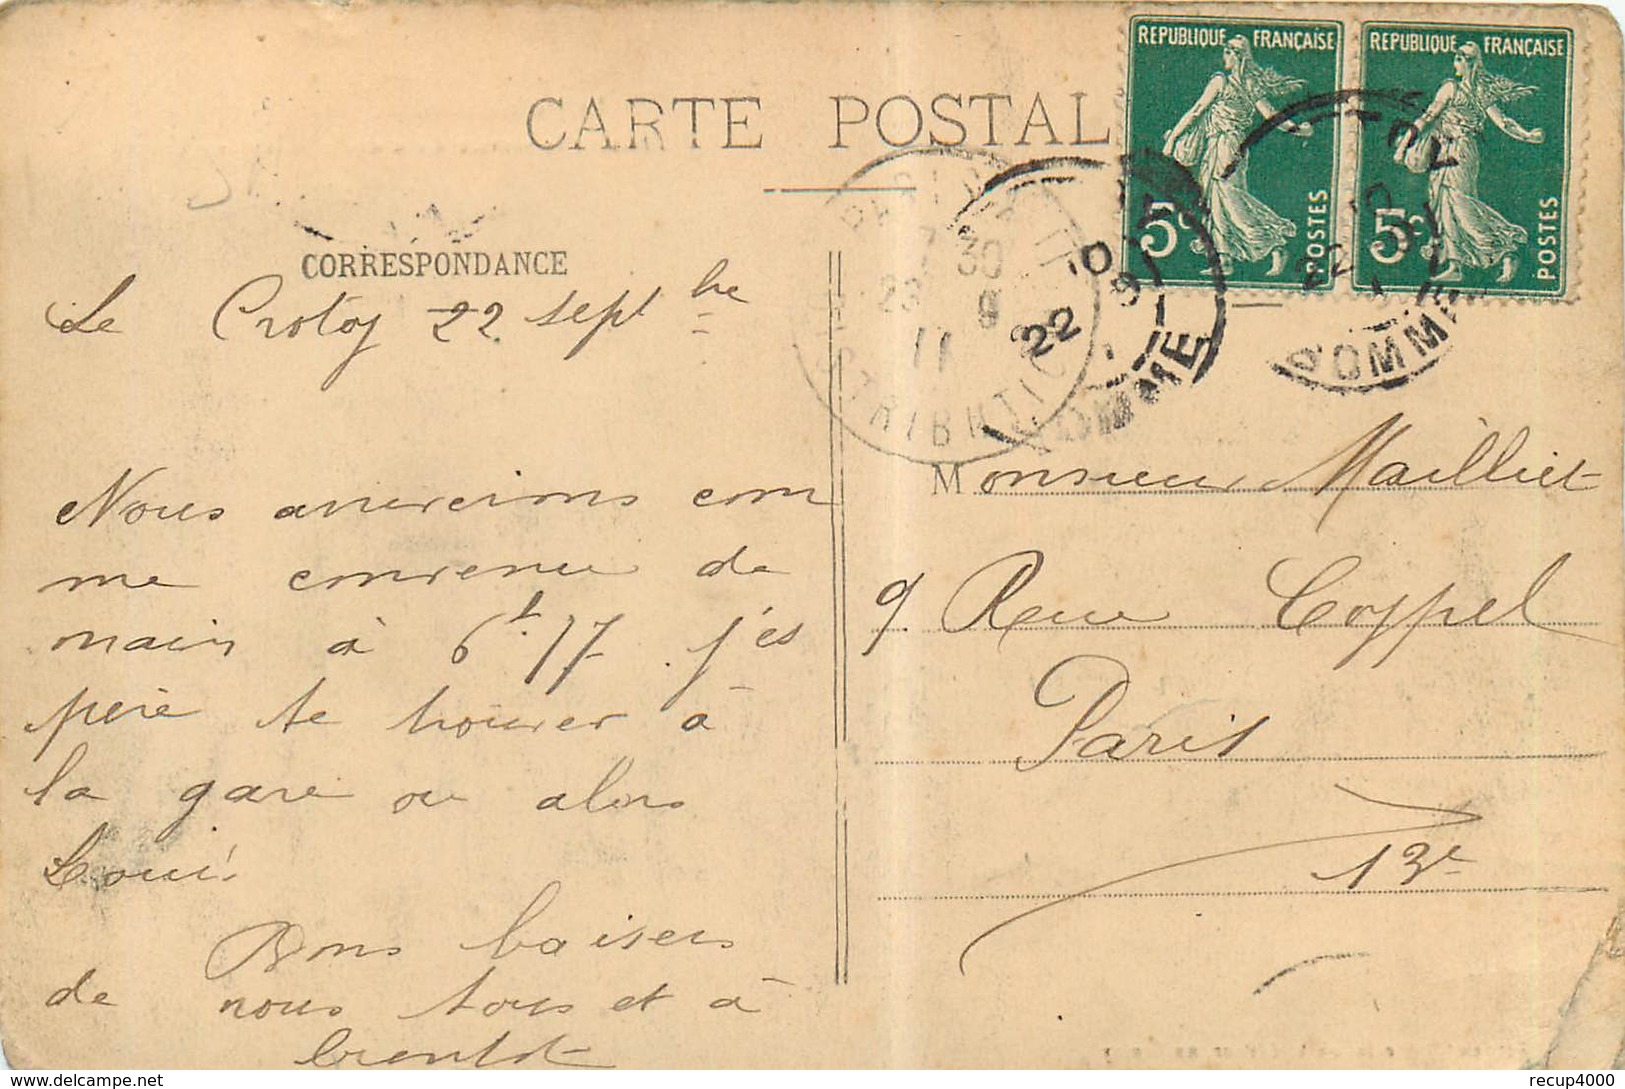 CARTE POSTALE
REPUBLIQUE FRANÇAISE
5c POSTES
REPUBLIQUE FRANÇAISE
5c POSTES
7 30
23 9
11
DISTRIBUTION
22
SOMME
22
SOMME
CORRESPONDANCE
Le Crotoy 22 septbre
Nous arriverons com
me convenu de
main à 6h.17 j'es
père te trouver à
la gare ou alors
Louis
Bons baisers
de nous tous et à
bientôt
Monsieur Mailliet
9. Rue Coypel
Paris
13e
recup4000